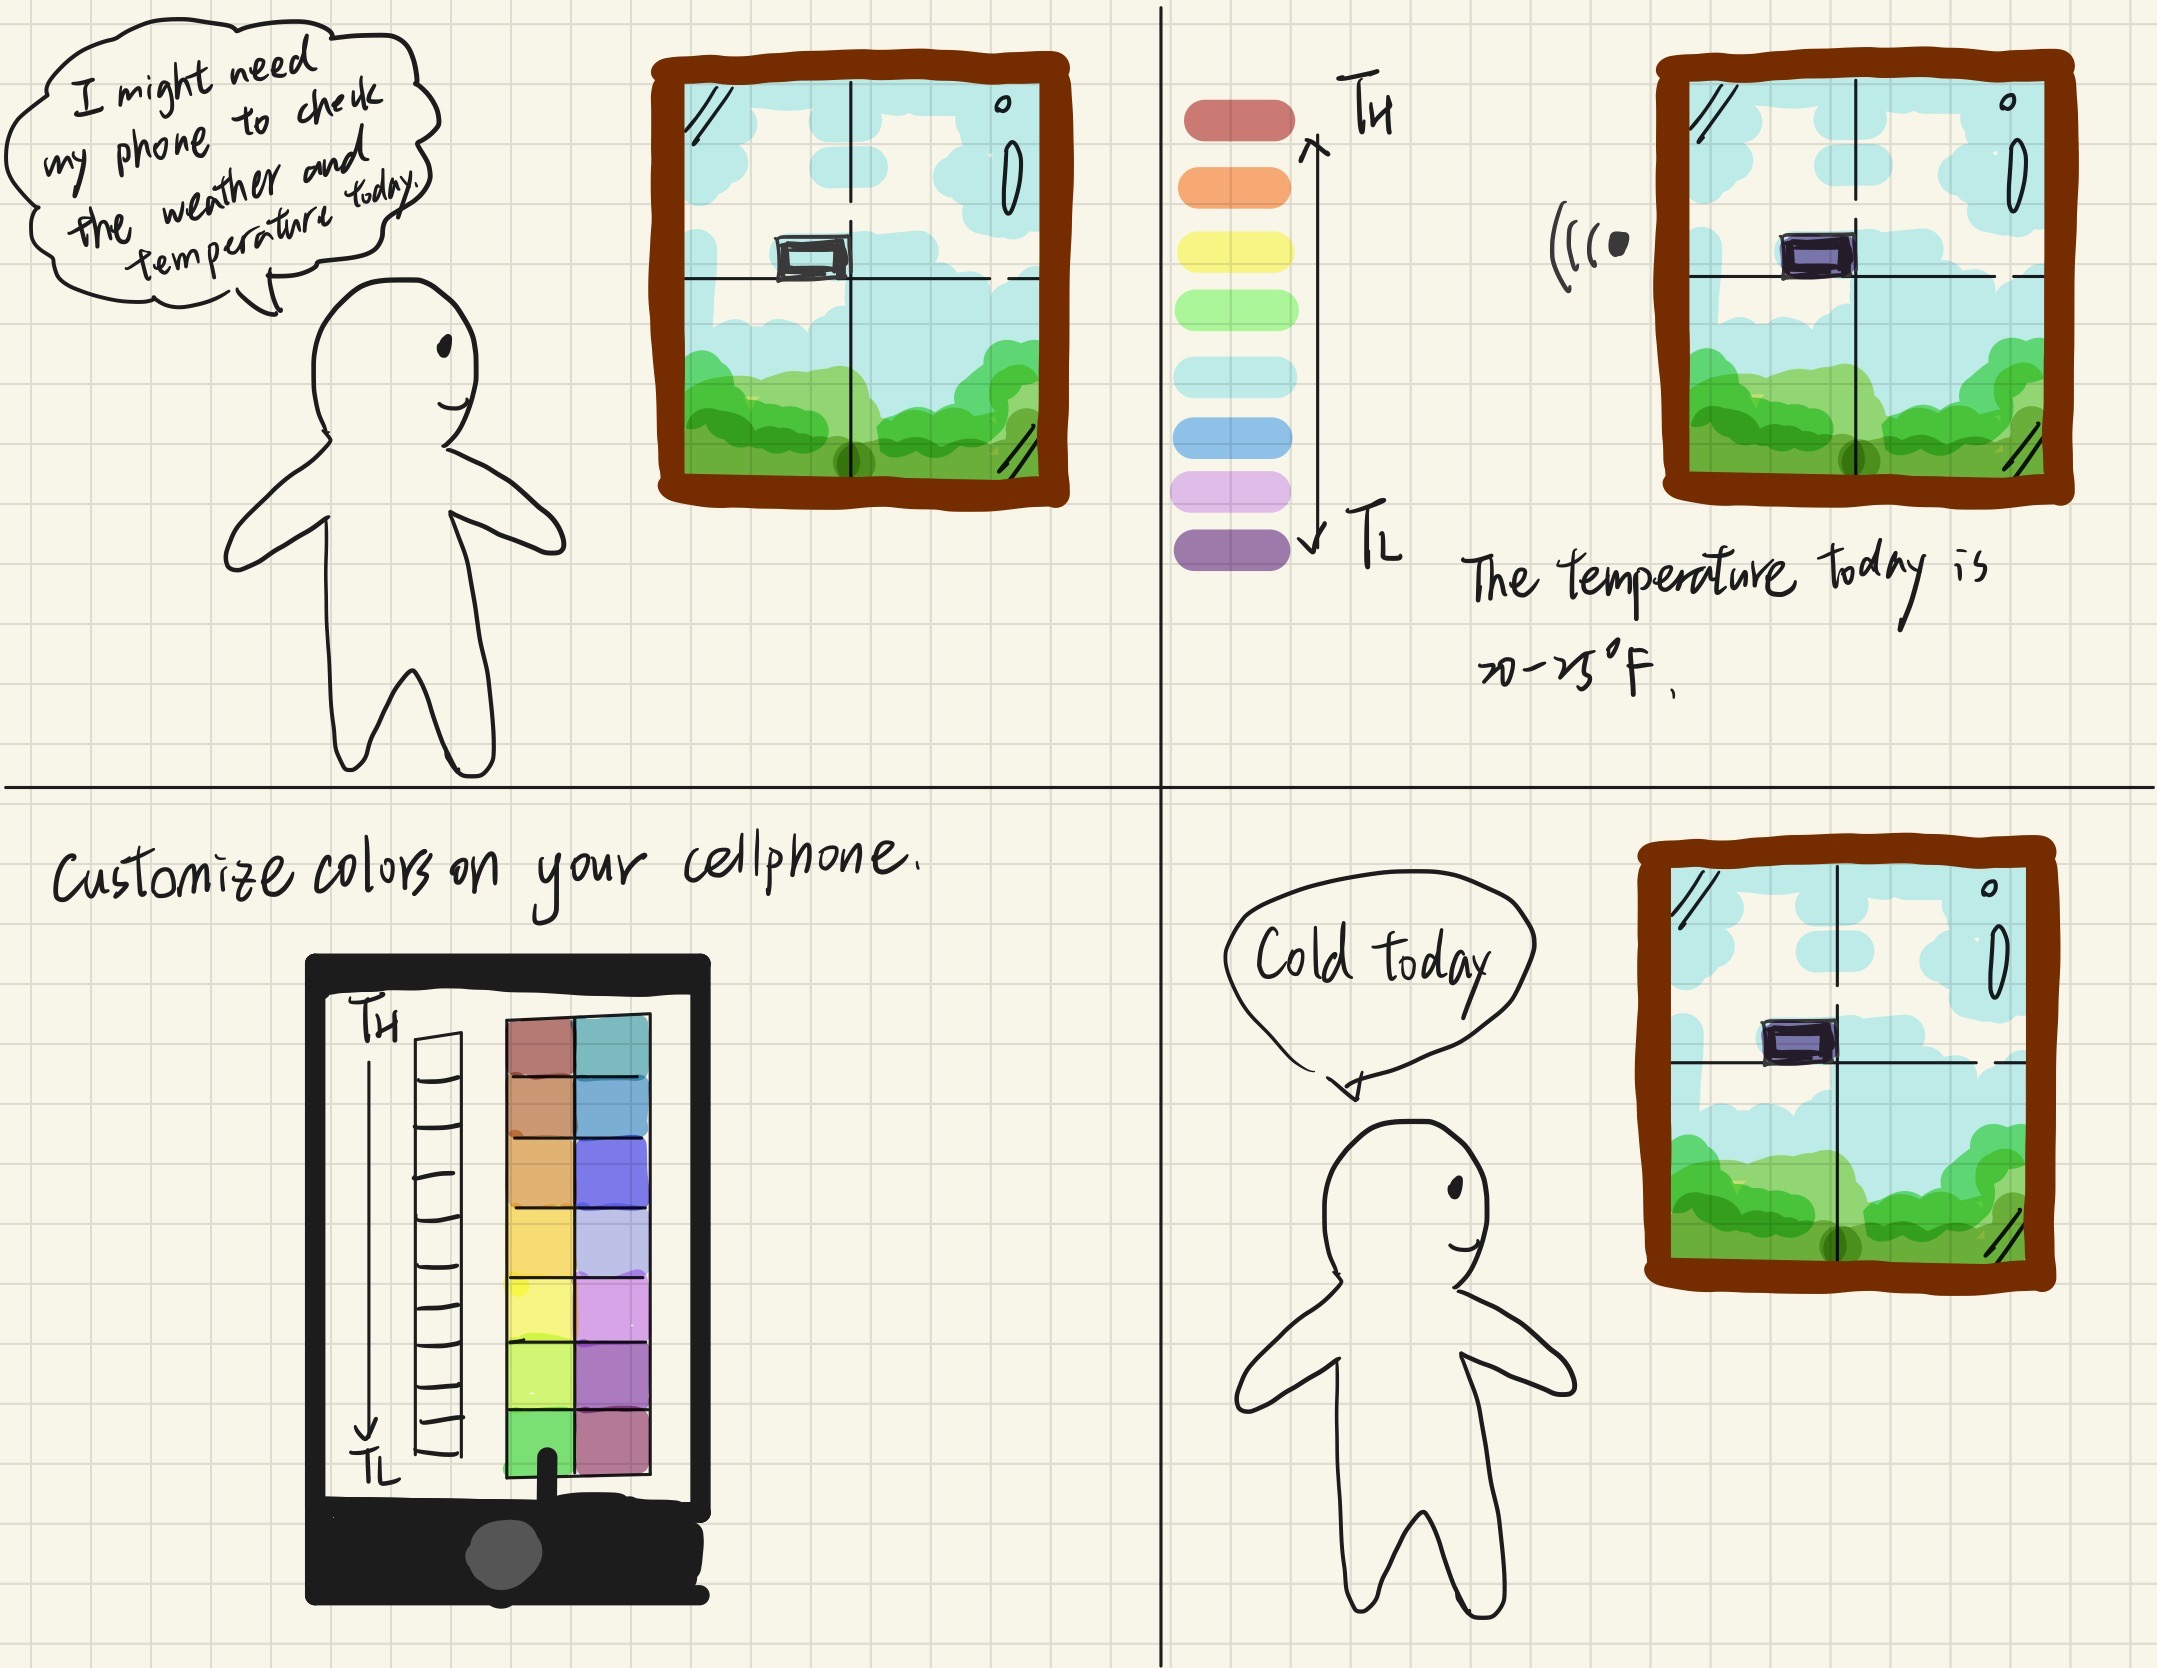 I might need
my phone to check
the weather and
temperature today.
TH
TL
The temperature today is
20-25°F.
Customize colors on your cellphone.
TH
TL
Cold today